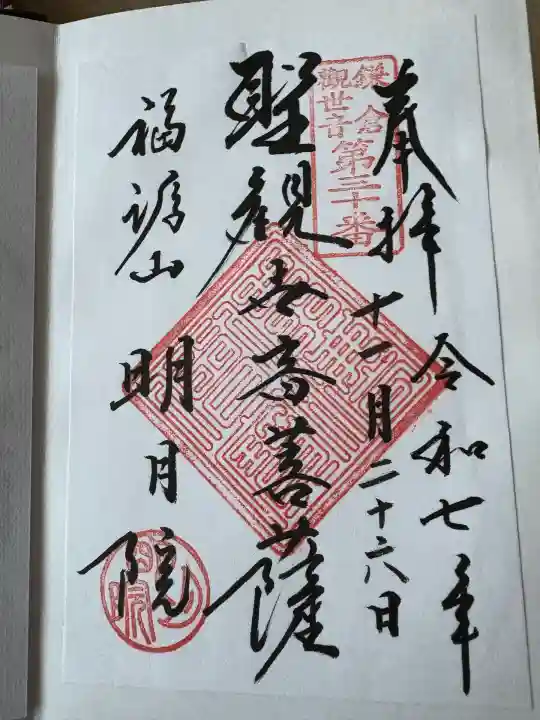 奉拝
令和七年
十一月二十六日
鎌倉
観世音
第三十番
聖観世音菩薩
福源山
明月院